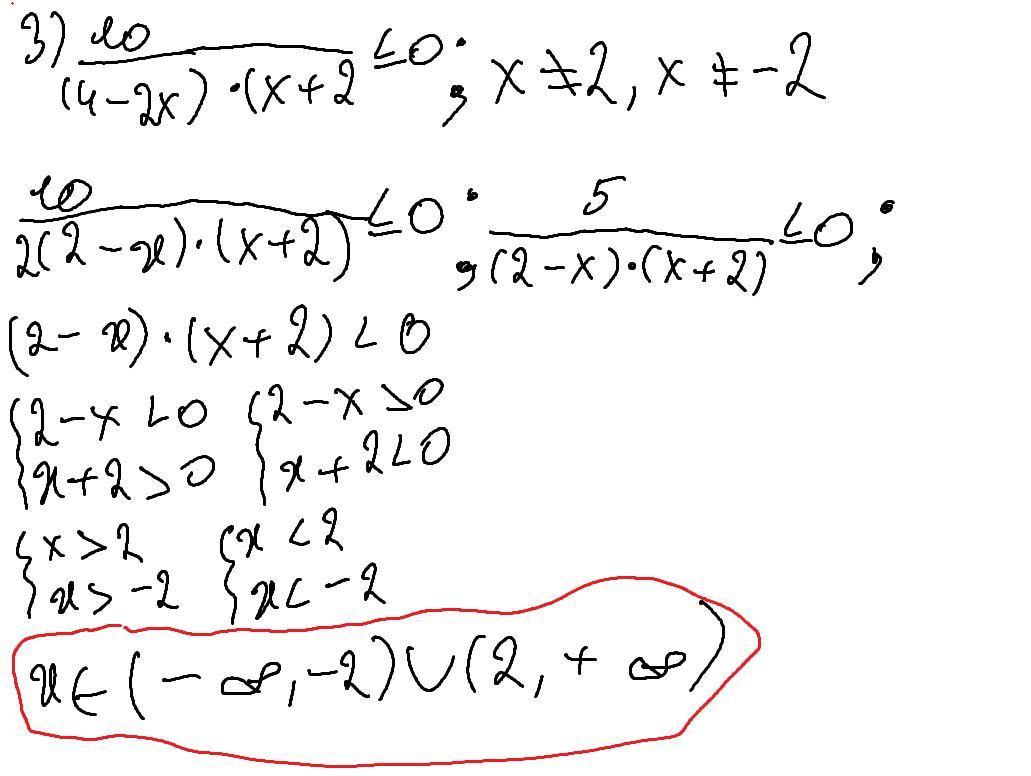 3) 10/((4-2x)·(x+2) ≤0; x≠2, x≠-2
10/(2(2-x)·(x+2)) ≤0; 5/((2-x)·(x+2)) ≤0;
(2-x)·(x+2)<0
{2-x<0 {2-x>0
{x+2>0 {x+2<0
{x>2 {x<2
{x>-2 {x<-2
x∈(-∞,-2)∪(2,+∞)